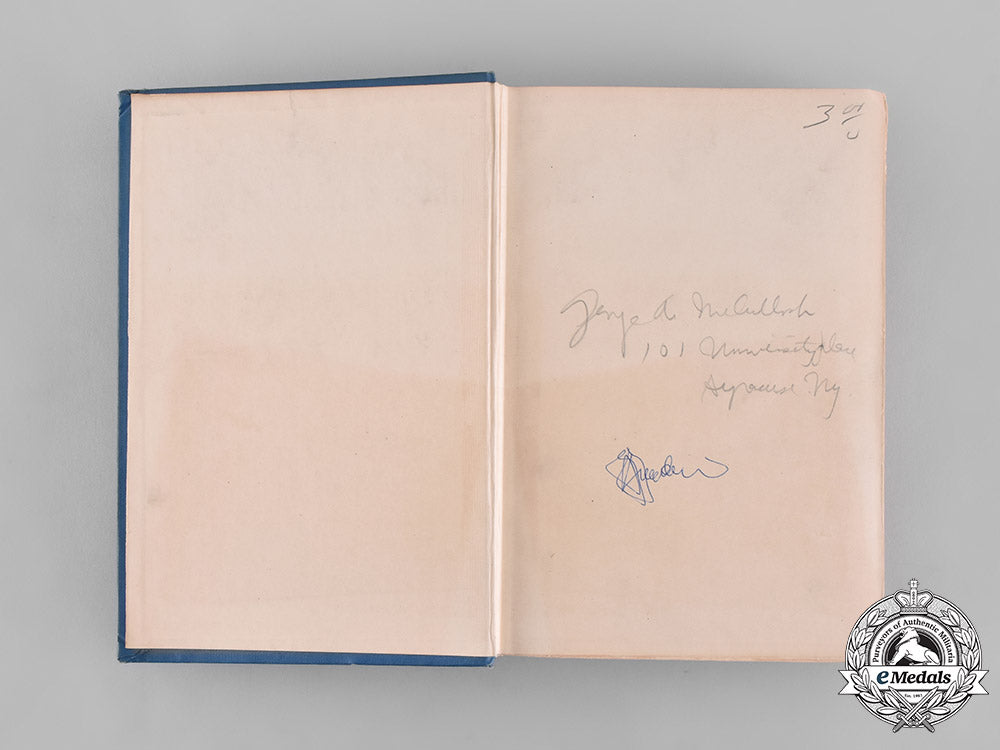 3
George A. McCulloch
101 University Place
Syracuse Ny.
Purveyors of Authentic Militaria
eMedals